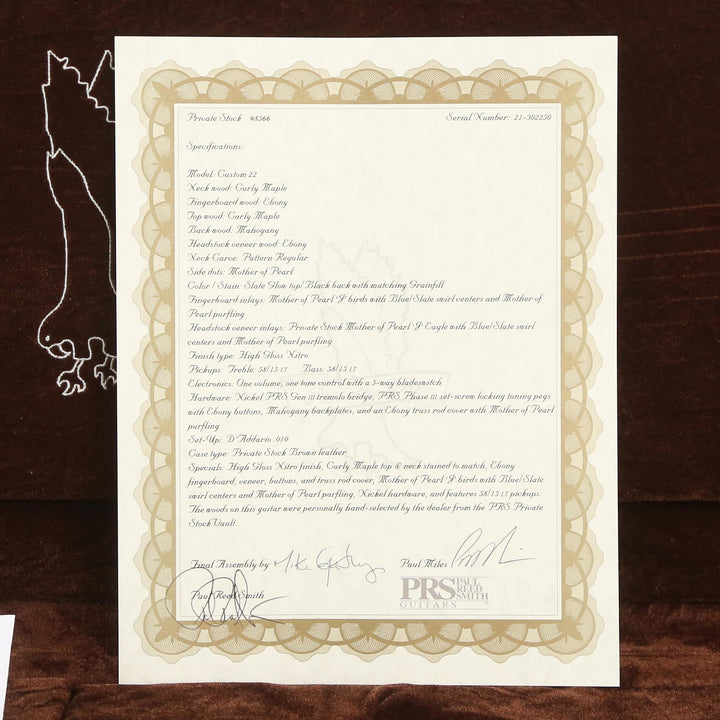 Private Stock #8566 Serial Number: 21-302250
Specifications:
Model: Custom 22
Neck wood: Curly Maple
Fingerboard wood: Ebony
Top wood: Curly Maple
Back wood: Mahogany
Headstock veneer wood: Ebony
Neck Carve: Pattern Regular
Side dots: Mother of Pearl
Color / Stain: Slate Glow top/ Black back with matching Grainfill
Fingerboard inlays: Mother of Pearl "J" birds with Blue/Slate swirl centers and Mother of
Pearl purfling
Headstock veneer inlays: Private Stock Mother of Pearl "J" Eagle with Blue/Slate swirl
centers and Mother of Pearl purfling
Finish type: High Gloss Nitro
Pickups: Treble: 58/15 LT Bass: 58/15 LT
Electronics: One volume, one tone control with a 5-way bladeswitch
Hardware: Nickel PRS Gen III tremolo bridge, PRS Phase III set-screw locking tuning pegs
with Ebony buttons, Mahogany backplates, and an Ebony truss rod cover with Mother of Pearl
purfling
Set-Up: D'Addario .010
Case type: Private Stock Brown leather
Specials: High Gloss Nitro finish, Curly Maple top & neck stained to match, Ebony
fingerboard, veneer, buttons, and truss rod cover, Mother of Pearl "J" birds with Blue/Slate
swirl centers and Mother of Pearl purfling, Nickel hardware, and features 58/15 LT pickups.
The woods on this guitar were personally hand-selected by the dealer from the PRS Private
Stock Vault.
Final Assembly by Mike Paul Miles
Paul Reed Smith
PRS PAUL REED SMITH
GUITARS